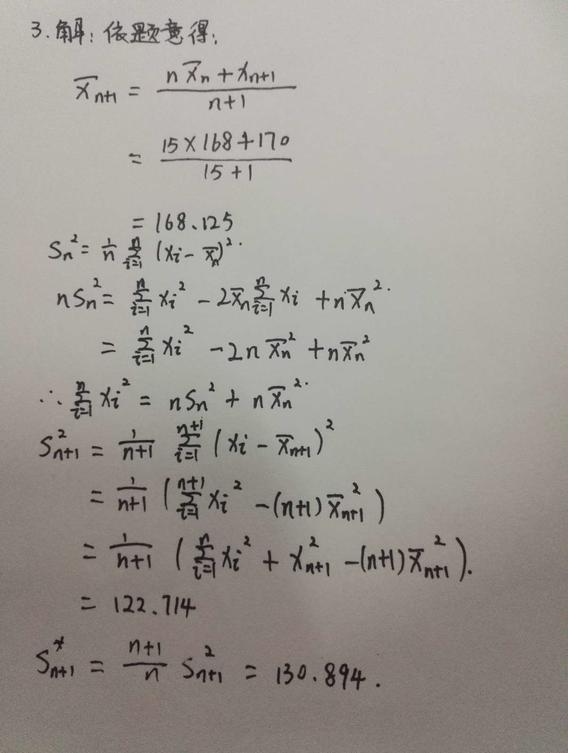 3.解:依题意得:
x̄ₙ₊₁ = (n x̄ₙ + xₙ₊₁)/(n+1)
= (15×168+170)/(15+1)
= 168.125
Sₙ² = 1/n Σᵢ₌₁ⁿ (xᵢ - x̄ₙ)².
nSₙ² = Σᵢ₌₁ⁿ xᵢ² - 2x̄ₙ Σᵢ₌₁ⁿ xᵢ + n x̄ₙ².
= Σᵢ₌₁ⁿ xᵢ² - 2n x̄ₙ² + n x̄ₙ²
∴ Σᵢ₌₁ⁿ xᵢ² = nSₙ² + n x̄ₙ².
Sₙ₊₁² = 1/(n+1) Σᵢ₌₁ⁿ⁺¹ (xᵢ - x̄ₙ₊₁)²
= 1/(n+1) (Σᵢ₌₁ⁿ⁺¹ xᵢ² - (n+1) x̄ₙ₊₁²)
= 1/(n+1) (Σᵢ₌₁ⁿ xᵢ² + xₙ₊₁² - (n+1) x̄ₙ₊₁²).
= 122.714
Sₙ₊₁* = (n+1)/n Sₙ₊₁² = 130.894.